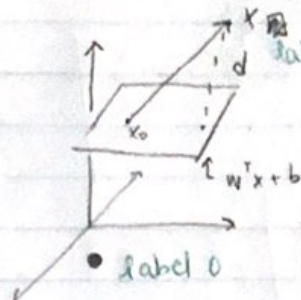 x
la
d
x₀
wᵀx + b
label 0